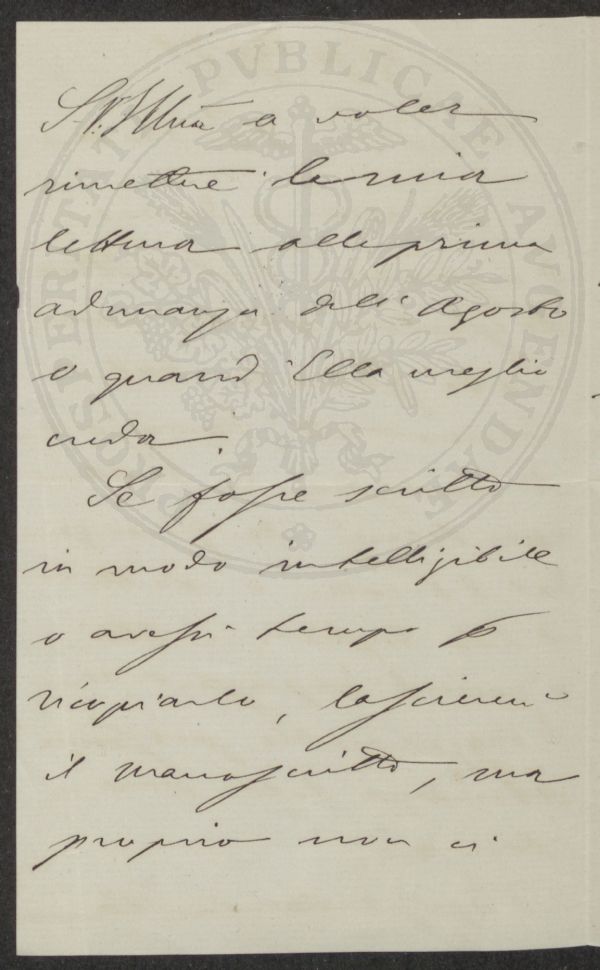 S. V. Illma a voler
rimettere la mia
lettura alla prima
adunanza dell' Agosto
o quand' Ella meglio
creda.
Se fosse scritto
in modo intelligibile
o avessi tempo p
ricopiarlo, lascierei
il manoscritto, ma
proprio non ci
PROSPERITATI PVBLICAE AVGENDAE